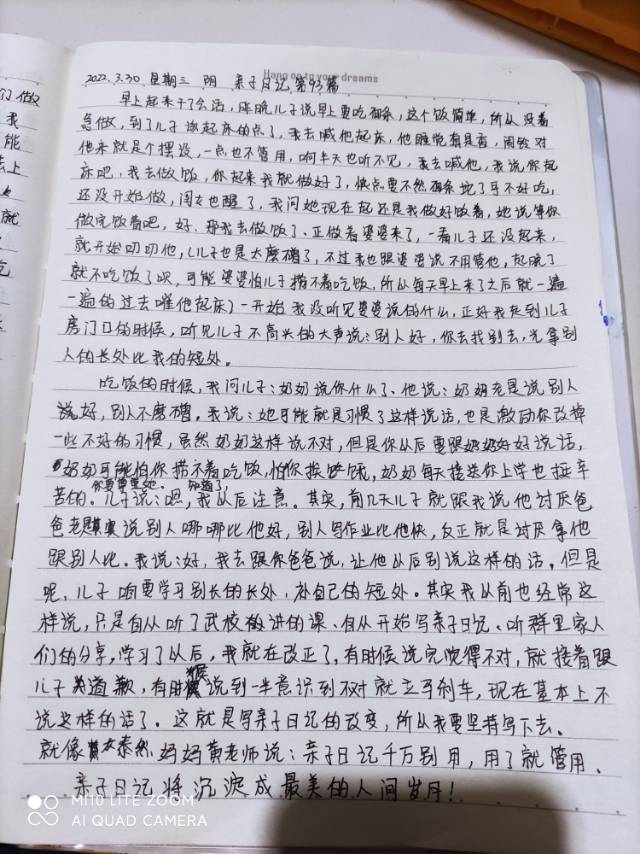 Hang on to your dreams
2022.3.30 星期三 阴 亲子日记第93篇
早上起来干了会活,昨晚儿子说早上要吃面条,这个饭简单,所以没着
急做,到了儿子该起床的点了,我去喊他起床,他睡觉有是香,闹铃对
他来就是个摆设,一点也不管用,响半天也听不见,我去喊他,我说你起
床吧,我去做饭,你起来我就做好了,快点要不然面条坨了可不好吃,
还没开始做,闺女也醒了,我问她现在起还是我做好饭着,她说等你
做完饭着吧,好、那我去做饭了、正做着婆婆来了,一看儿子还没起来,
就开始叨叨他,(儿子也是太磨蹭了,不过我也跟婆婆说不用管他,起晚了
就不吃饭了呗,可能婆婆怕儿子捞不着吃饭,所以每天早上来了之后就一遍
一遍的过去催他起床)一开始我没听见婆婆说的什么,正好我走到儿子
房门口的时候,听见儿子不高兴的大声说:别人好,你去找别去,光拿别
人的长处比我的短处。
吃饭的时候,我问儿子:奶奶说你什么了、他说:奶奶老是说别人
说好,别人不磨蹭。我说:她可能就是习惯了这样说话,也是激励你改掉
一些不好的习惯,虽然奶奶这样说不对,但是你以后要跟奶奶好好说话,
奶奶可能怕你捞不着吃饭,怕你挨饿,奶奶每天接送你上学也挺辛
苦的。你要尊重她。儿子说:嗯,知道了,我以后注意。其实,前几天儿子就跟我说他讨厌爸
爸老是说别人哪哪比他好,别人写作业比他快,反正就是讨厌拿他
跟别人比。我说:好,我去跟你爸爸说,让他以后别说这样的话。但是
呢,儿子咱要学习别长的长处,补自己的短处。其实我以前也经常这
样说,只是自从听了武校讲的课、自从开始写亲子日记、听群里家人
们的分享,学习了以后,我就在改正了,有时候说完觉得不对,就接着跟
儿子道歉,有时候说到一半意识到不对就立马刹车,现在基本上不
说这样的话了。这就是写亲子日记的改变,所以我要坚持写下去。
就像泰然妈妈黄老师说:亲子日记千万别用,用了就管用、
亲子日记将沉淀成最美的人间岁月!
MI 10 LITE ZOOM
AI QUAD CAMERA